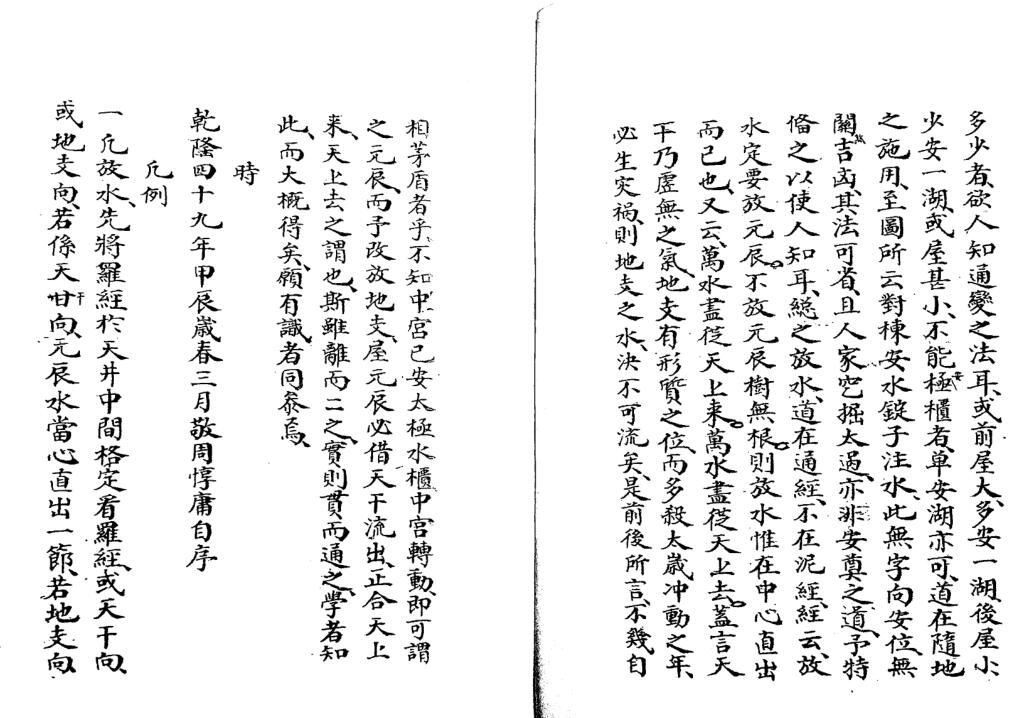 多少者欲人知通變之法耳或前屋大多安一湖後屋小
少安一湖或屋甚小不能安極櫃者單安湖亦可道在隨地
之施用至圖所云對棟安水錠子注水此無字向安位無
關吉凶故其法可省且人家穵掘太過亦非安奠之道予特
俻之以使人知耳縂之放水道在通經不在泥經經云放
水定要放元辰不放元辰樹無根則放水惟在中心直出
而已也又云萬水盡從天上来萬水盡從天上去蓋言天
干乃虛無之氣地支有形質之位而多殺太歲冲動之年
必生灾禍則地支之水決不可流矣是前後所言不幾自
相茅盾者乎不知中宮已安太極水櫃中宮轉動即可謂
之元辰而予改放地支屋元辰必借天干流出正合天上
来天上去之謂也斯雖離而二之實則貫而通之學者知
此而大概得矣願有識者同叅焉
時
乾隆四十九年甲辰歲春三月敬周惇庸自序
凡例
一凡放水先將羅經扵天井中間格定看羅經或天干向
或地支向若係天干甘向元辰水當心直出一節若地支向